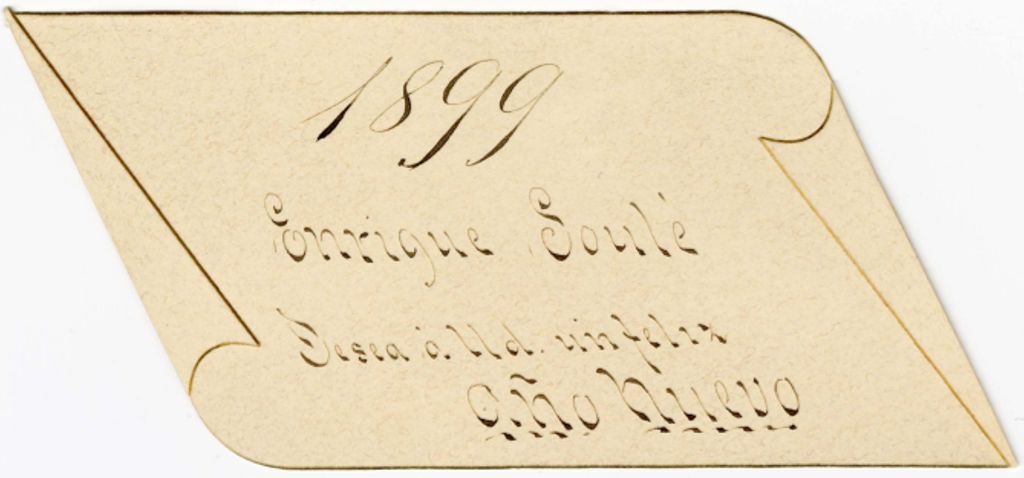 1899
Enrique Soulé
Desea á Ud. un feliz
Año Nuevo